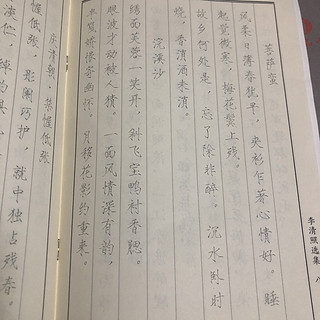 李清照选集
菩萨蛮
风柔日薄春犹早，夹衫乍著心情好。睡
起觉微寒，梅花鬓上残。
故乡何处是，忘了除非醉。沉水卧时
烧，香消酒未消。
浣溪沙
绣面芙蓉一笑开，斜飞宝鸭衬香腮。
眼波才动被人猜。一面风情深有韵，
半笺娇恨寄幽怀。月移花影约重来。
庆清朝，禁幄低张
禁幄低张，彤阑巧护，就中独占残春。